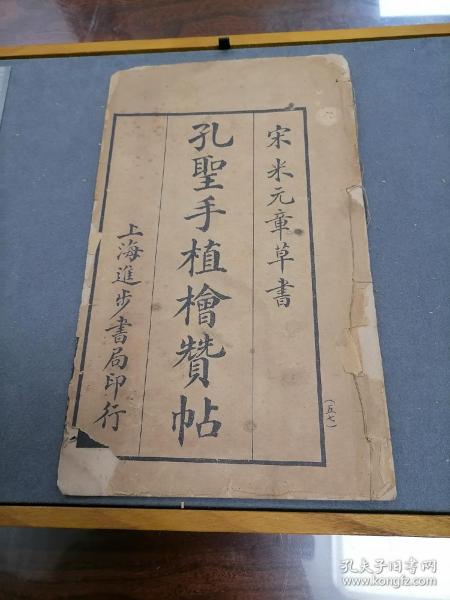 宋米元章草書
孔聖手植檜贊帖
上海進步書局印行
(五七)
孔夫子旧书网
www.kongfz.com